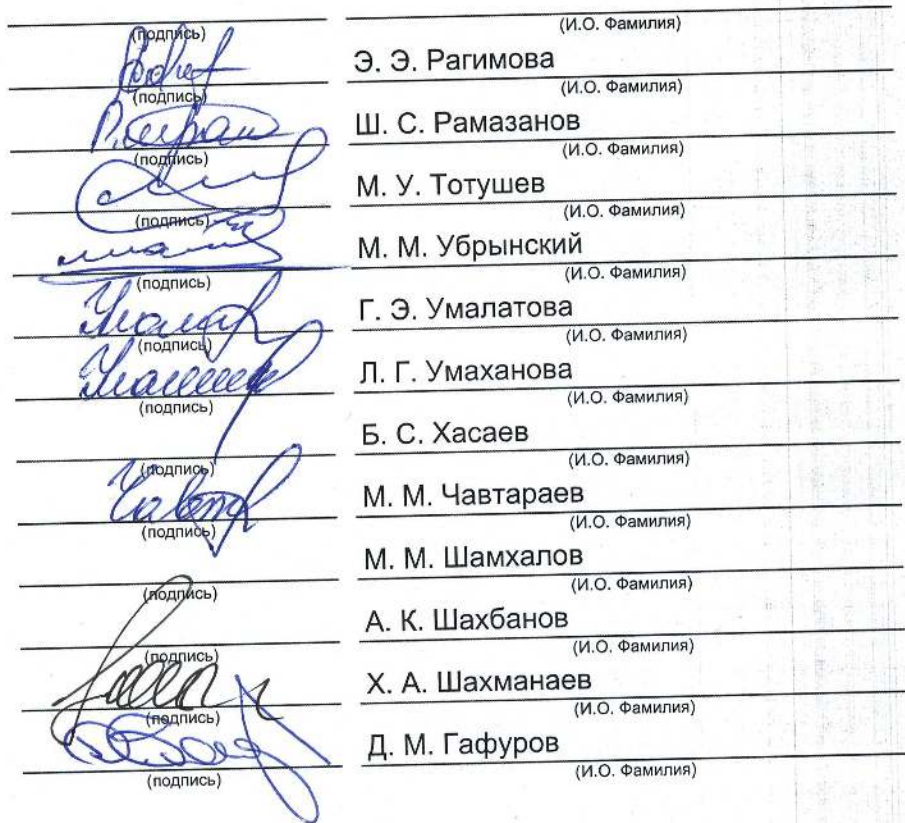 (подпись) (И.О. Фамилия)
Э. Э. Рагимова
(подпись) (И.О. Фамилия)
Ш. С. Рамазанов
(подпись) (И.О. Фамилия)
М. У. Тотушев
(подпись) (И.О. Фамилия)
М. М. Убрынский
(подпись) (И.О. Фамилия)
Г. Э. Умалатова
(подпись) (И.О. Фамилия)
Л. Г. Умаханова
(подпись) (И.О. Фамилия)
Б. С. Хасаев
(подпись) (И.О. Фамилия)
М. М. Чавтараев
(подпись) (И.О. Фамилия)
М. М. Шамхалов
(подпись) (И.О. Фамилия)
А. К. Шахбанов
(подпись) (И.О. Фамилия)
Х. А. Шахманаев
(подпись) (И.О. Фамилия)
Д. М. Гафуров
(подпись) (И.О. Фамилия)